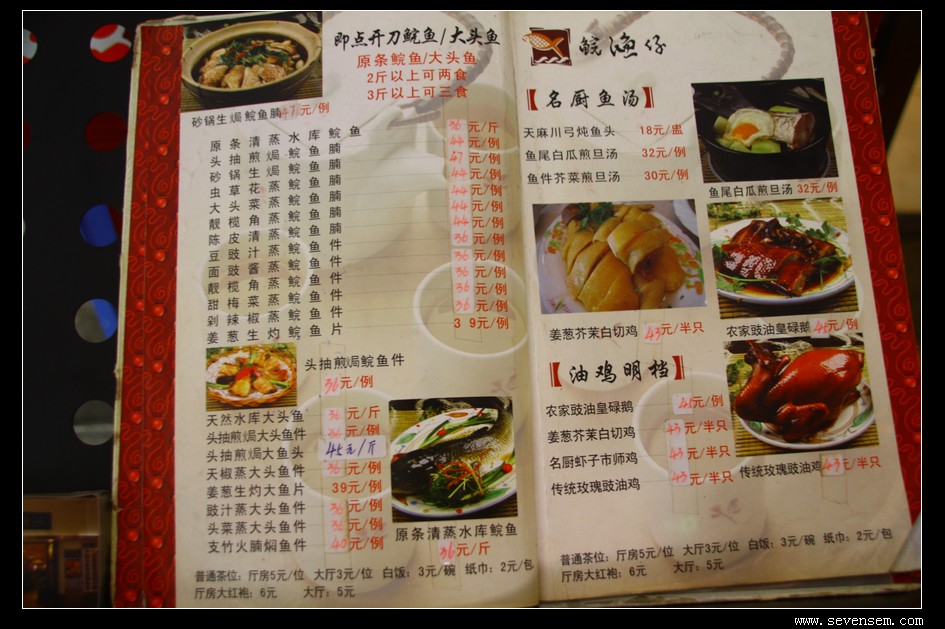 即点开刀鲩鱼/大头鱼
原条鲩鱼/大头鱼
2斤以上可两食
3斤以上可三食
砂锅生焗鲩鱼腩47元/例
原条清蒸水库鲩鱼 36元/斤
头抽煎焗鲩鱼腩 44元/例
砂锅生焗鲩鱼腩 47元/例
虫草花蒸鲩鱼腩 44元/例
大头菜蒸鲩鱼腩 44元/例
靓榄角蒸鲩鱼腩 44元/例
陈皮清蒸鲩鱼腩 44元/例
豆豉汁蒸鲩鱼件 36元/例
面豉酱蒸鲩鱼件 36元/例
靓榄角蒸鲩鱼件 36元/例
甜梅菜蒸鲩鱼件 36元/例
剁辣椒蒸鲩鱼件 36元/例
姜葱生灼鲩鱼片 39元/例
头抽煎焗鲩鱼件
36元/例
天然水库大头鱼 36元/斤
头抽煎焗大头鱼件 36元/例
头抽煎焗大鱼头 45元/斤
天椒蒸大头鱼件 36元/例
姜葱生灼大鱼片 39元/例
豉汁蒸大头鱼件 36元/例
头菜蒸大头鱼件 36元/例
支竹火腩焖鱼件 40元/例
原条清蒸水库鲩鱼
36元/斤
普通茶位：厅房5元/位 大厅3元/位 白饭：3元/碗 纸巾：2元/包
厅房大红袍：6元 大厅：5元
鲩渔仔
【名厨鱼汤】
天麻川弓炖鱼头 18元/盅
鱼尾白瓜煎旦汤 32元/例
鱼件芥菜煎旦汤 30元/例
鱼尾白瓜煎旦汤 32元/例
姜葱芥茉白切鸡 43元/半只
农家豉油皇碌鹅 46元/例
【油鸡明档】
农家豉油皇碌鹅 元/例
姜葱芥茉白切鸡 43元/半只
名厨虾子市师鸡 43元/半只
传统玫瑰豉油鸡 43元/半只
传统玫瑰豉油鸡43元/半只
普通茶位：厅房5元/位 大厅3元/位 白饭：3元/碗 纸巾：2元/包
厅房大红袍：6元 大厅：5元
www.sevensem.com